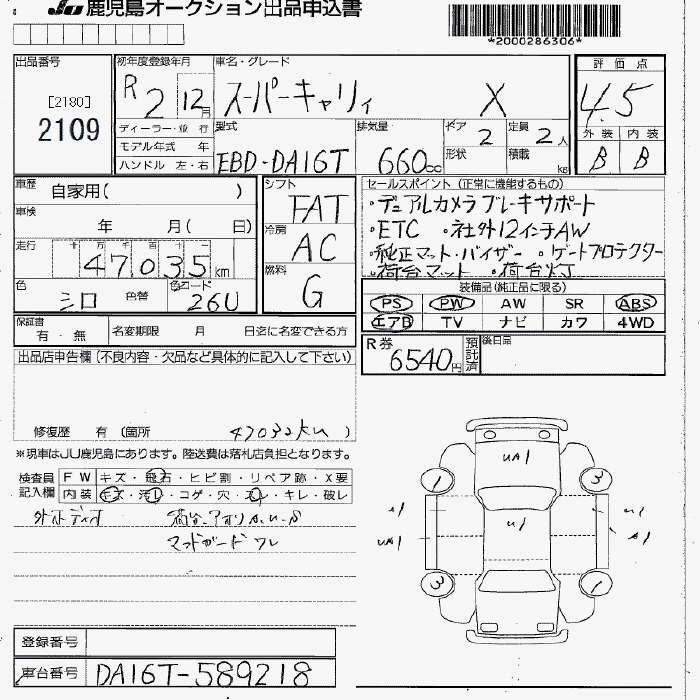 JU 鹿児島オークション出品申込書
*2000286306*
出品番号
[2180]
2109
初年度登録年月
R 2 12月
車名・グレード
スーパーキャリィ X
評価点
4.5
外装 内装
B B
ディーラー・並行
モデル年式 年
ハンドル 左・右
型式
EBD-DA16T
排気量
660cc
ドア 2
形状
定員 2人
積載 kg
車歴
自家用( )
車検
年 月( 日)
走行
十万千百十
47035km
色
シロ
色替
色コード
26U
シフト
FAT
冷房
AC
燃料
G
セールスポイント (正常に機能するもの)
・デュアルカメラブレーキサポート
・ETC ・社外12インチAW
・純正マット・バイザー ・ゲートプロテクター
・荷台マット ・荷台灯
装備品(純正品に限る)
PS PW AW SR ABS
エアB TV ナビ カワ 4WD
保証書
有・無
名変期限 月 日迄に名変できる方
R券
6540円
預託済
後日品
出品店申告欄(不良内容・欠品など具体的に記入して下さい)
修復歴 有 (箇所 )
47032km
※現車はJU鹿児島にあります。陸送費は落札店負担となります。
検査員記入欄
FW キズ・飛石・ヒビ割・リペア跡・X要
内装 キズ・汚レ・コゲ・穴・スレ・キレ・破レ
マッドガードワレ
UA1
1 3
U1
UA1
3 1
登録番号
車台番号
DA16T-589218